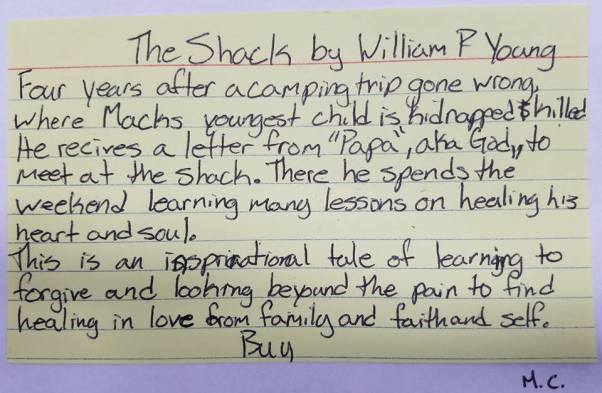 The Shack by William P Young
Four years after a camping trip gone wrong,
where Macks youngest child is kidnapped & killed
He recives a letter from "Papa", aka God, to
meet at the shack. There he spends the
weekend learning many lessons on healing his
heart and soul.
This is an insprirational tale of learning to
forgive and looking beyound the pain to find
healing in love from family and faith and self.
Buy
M.C.